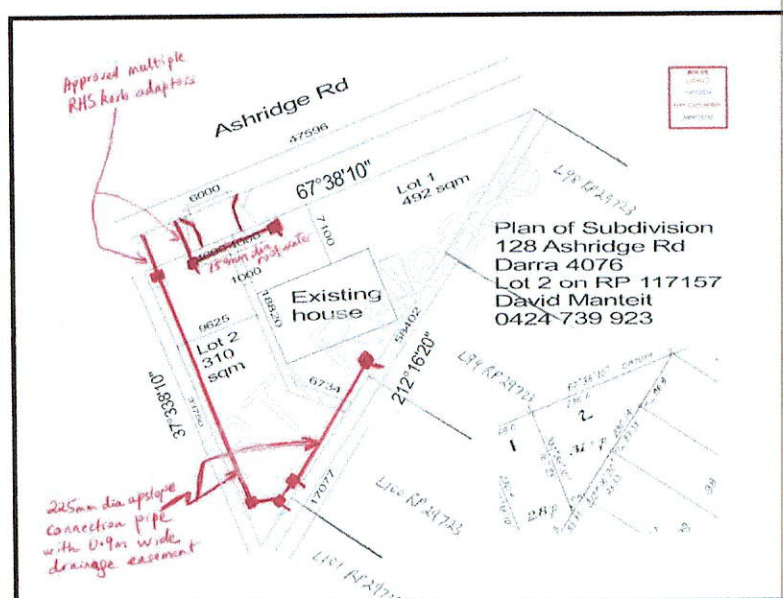 Approved multiple
RHS kerb adaptors
Ashridge Rd
47596
6000
67°38'10"
Lot 1
492 sqm
7100
roof water
1000
18820
Existing
house
9625
Lot 2
310
sqm
6734
58402
212°16'20"
37°338'10"
31750
17077
225mm dia upslope
connection pipe
with 0.9m wide
drainage easement
L98 RP 29723
Plan of Subdivision
128 Ashridge Rd
Darra 4076
Lot 2 on RP 117157
David Manteit
0424 739 923
L99 RP 29723
L100 RP 29723
L101 RP 2972
67° 38' 10"
1
2